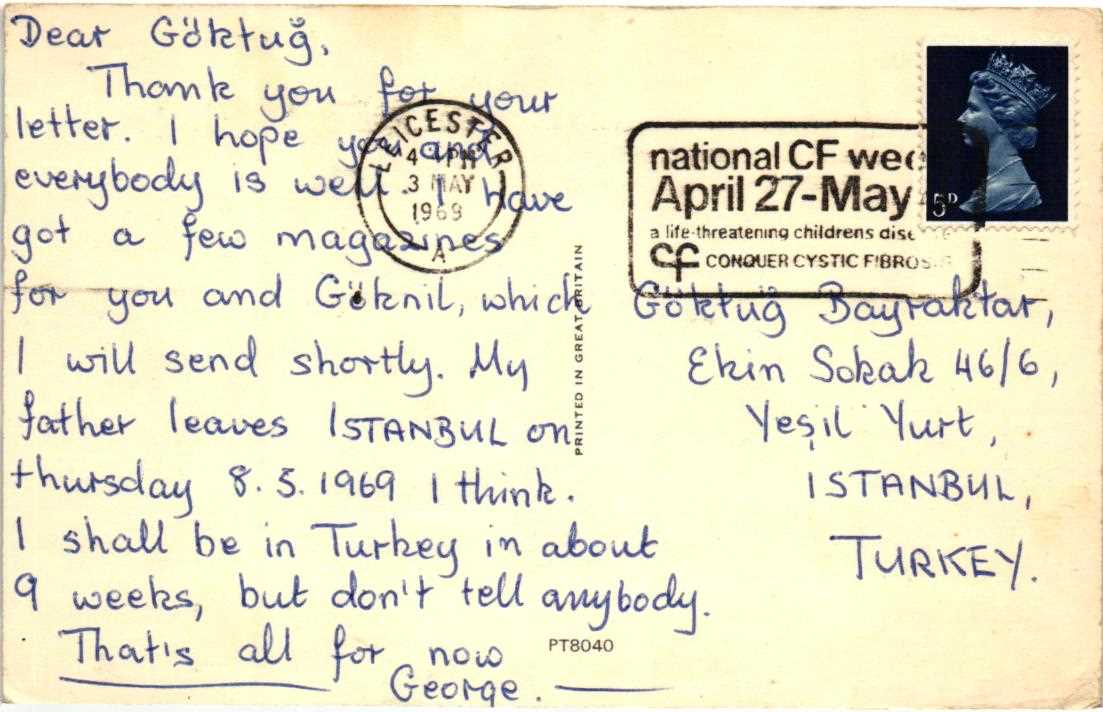 Dear Göktuğ,
Thank you for your
letter. I hope you and
everybody is well. I have
got a few magazines
for you and Göknil, which
I will send shortly. My
father leaves ISTANBUL on
thursday 8.5.1969 I think.
I shall be in Turkey in about
9 weeks, but don't tell anybody.
That's all for now
George.
PT8040
PRINTED IN GREAT BRITAIN
LEICESTER
4 PM
3 MAY
1969
A
national CF wee
April 27-May
a life-threatening childrens dise
cf CONQUER CYSTIC FIBROSIS
5D
Göktuğ Bayraktar,
Ekin Sokak 46/6,
Yeşil Yurt,
ISTANBUL,
TURKEY.